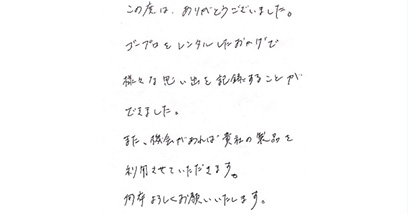 この度は、ありがとうございました。
ゴープロをレンタルしたおかげで
様々な思い出を記録することが
できました。
また、機会があれば貴社の製品を
利用させていただきます。
何卒よろしくお願いいたします。